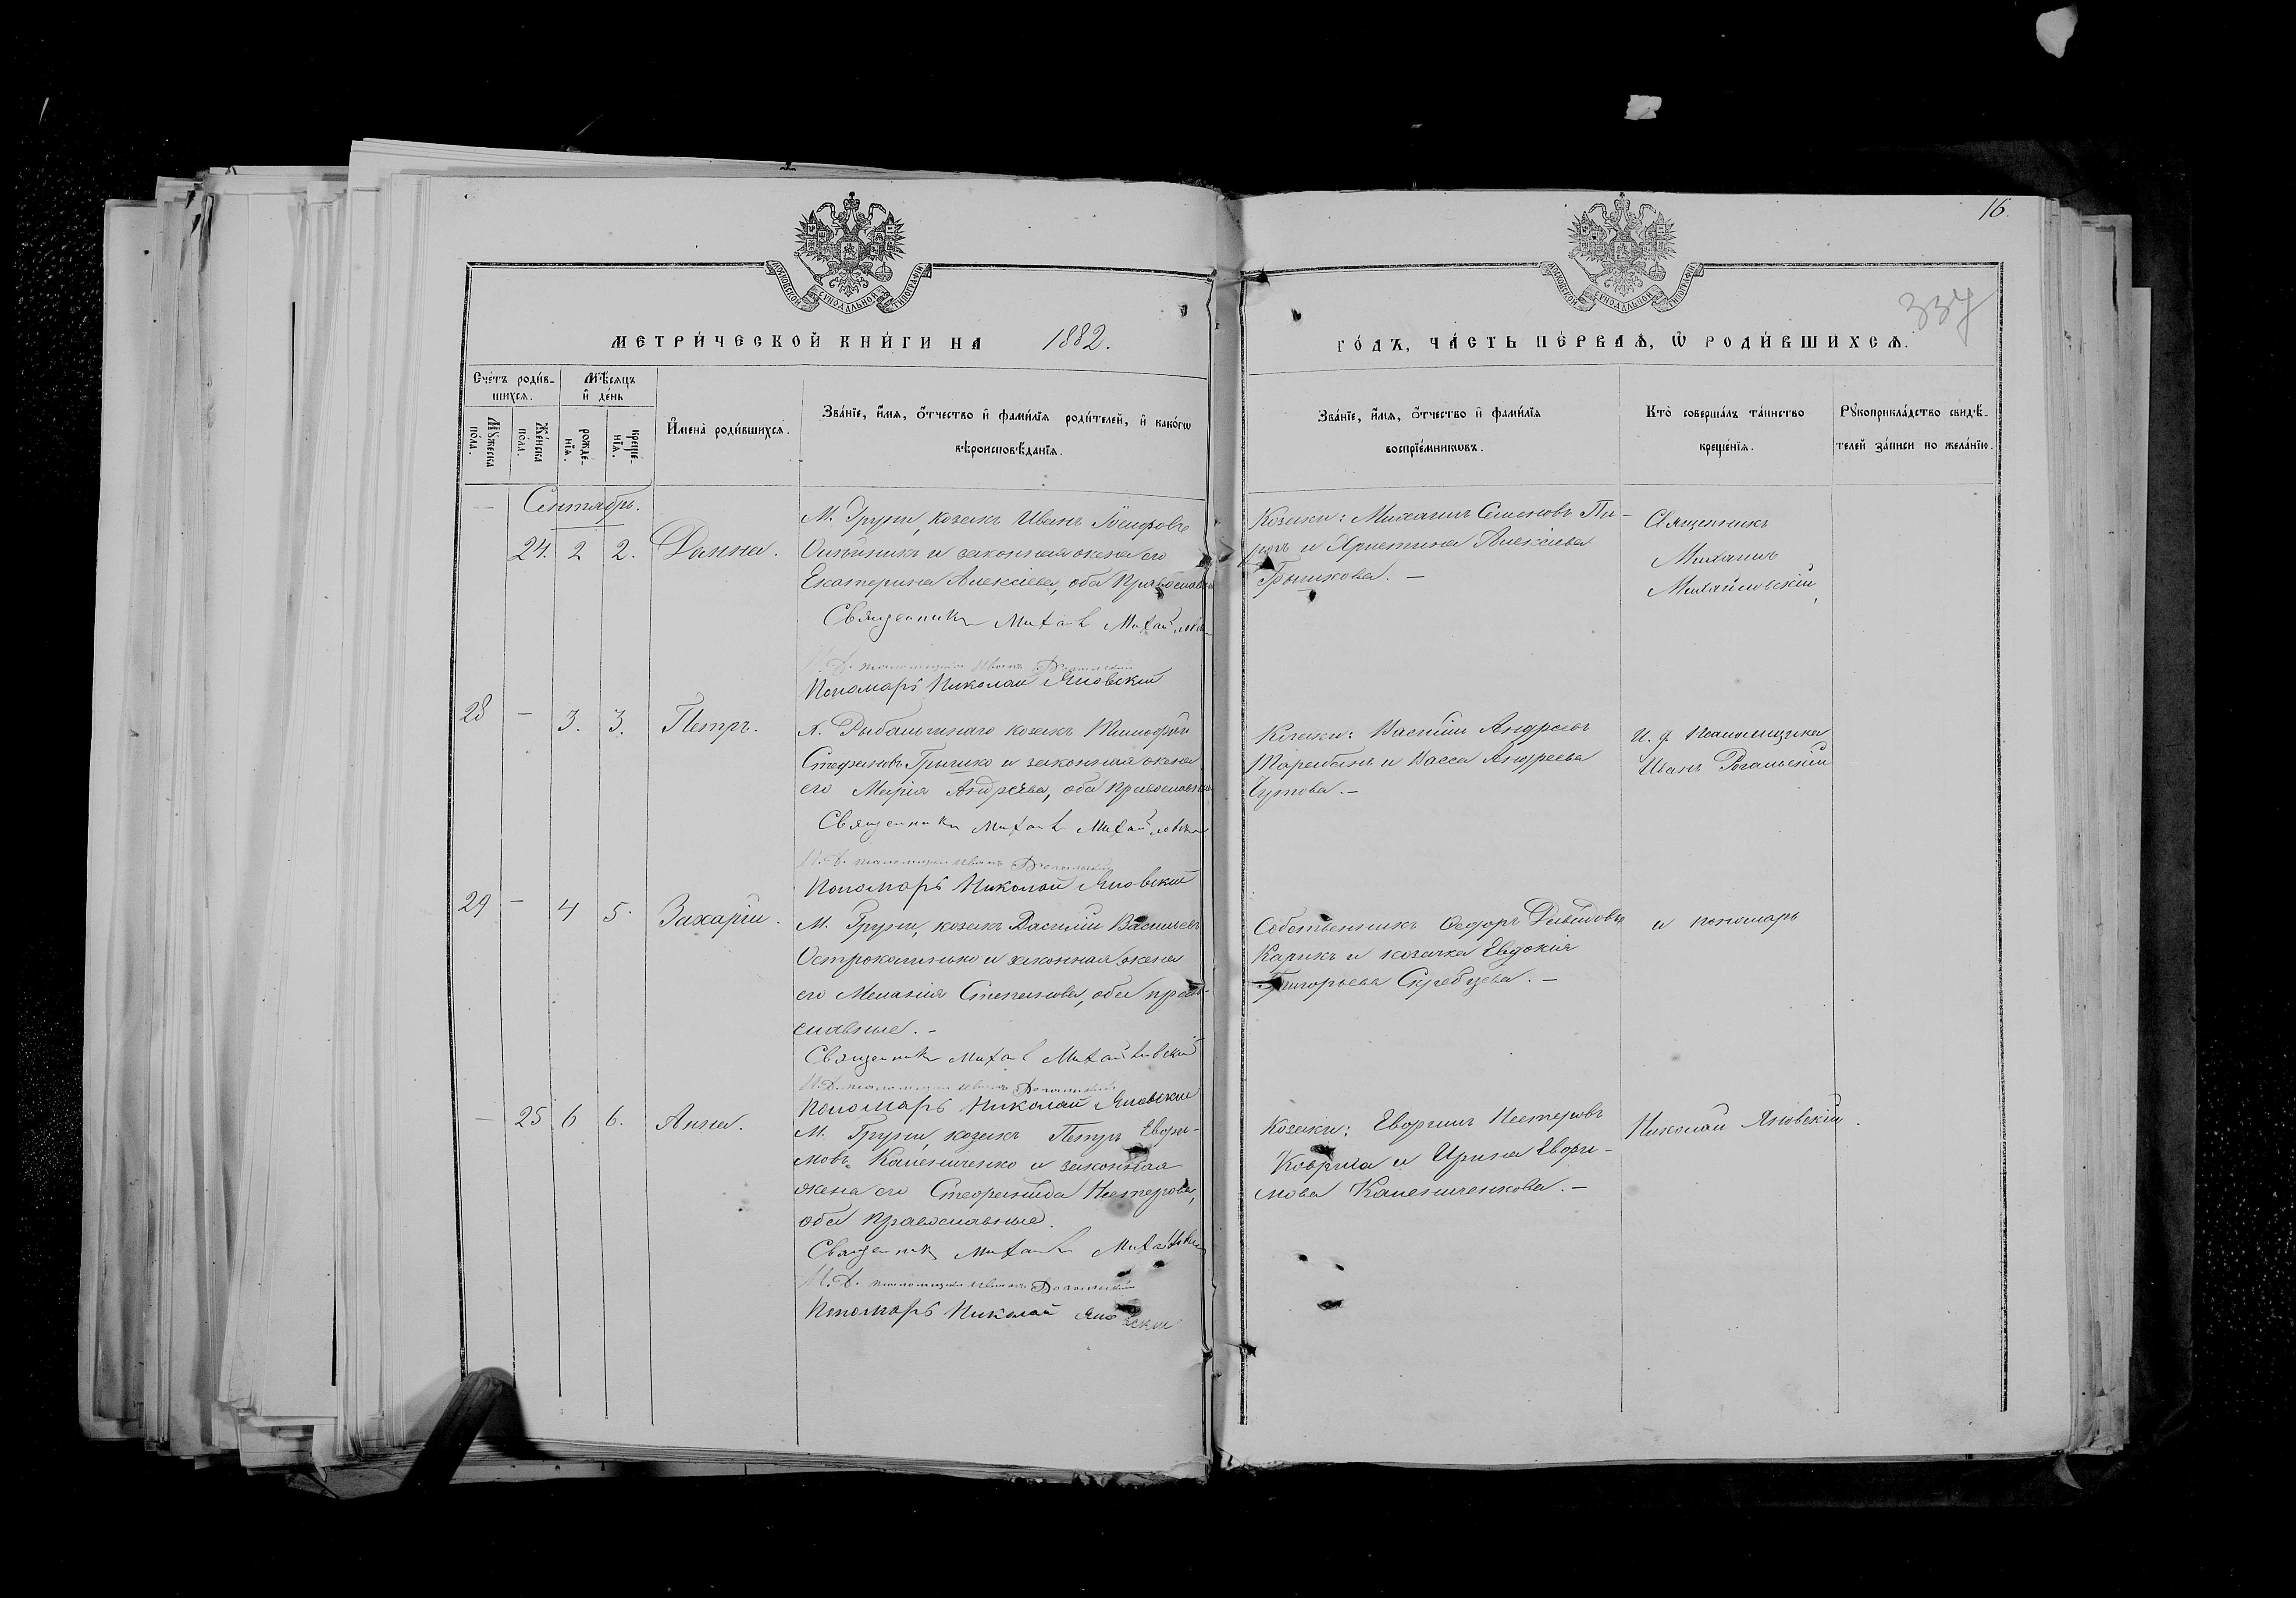 16.
337
МОСКОВСКОЙ СѴНОДАЛЬНОЙ ТИПОГРАФІИ
МОСКОВСКОЙ СѴНОДАЛЬНОЙ ТИПОГРАФІИ
МЕТРИ́ЧЕСКОЙ КНИ́ГИ НА 1882.
ГО́ДЪ, ЧА́СТЬ ПЕ́РВАѦ, Ѿ РОДИ́ВШИХСѦ.
Сче́тъ роди́в-
шихсѧ.
Мѣ́сѧцъ
и҆ де́нь
Мꙋ́жеска
по́ла.
Же́нска
по́ла.
рожде́-
нїѧ.
креще́-
нїѧ.
И҆мена̀ роди́вшихсѧ.
Зва́нїе, и҆́мѧ, ѻ҆́тчество и҆ фами́лїѧ роди́телей, и҆ како́гѡ
вѣроисповѣ́данїѧ.
Зва́нїе, и҆́мѧ, ѻ҆́тчество и҆ фами́лїѧ
воспрїе́мникѡвъ.
Кто̀ соверша́лъ та́инство
креще́нїѧ.
Рꙋкоприкла́дство свидѣ́-
телей за́писи по жела́нїю.
Сентябрь.
24. 2 2. Данна.
М. Груни, козакъ Иванъ Іосифовъ
и законная жена его
Екатерина Алексіева, оба православн
Священникъ Михаил Михайлов
И. д. псаломщика Иванъ Рогальский
Пономарь Николай Яновский
Козаки: Михаилъ Семеновъ Пи-
и Христина Алексіева
Грицкова. —
Священникъ
Михаилъ
Михайловскій,
28 — 3. 3. Петръ.
х. Рыбальчнаго козакъ Тимофій
Стефановъ Грицко и законная жена
его Марія Андреева, оба православн
Священникъ Михаил Михайловский
И. д. псаломщика Иванъ Рогальский
Пономарь Николай Яновский
Козаки: Василій Андреевъ
Тарабанъ и Васса Андреева
Чутова. —
И. д. Псаломщика
Иванъ Рогальскій
29 — 4 5. Захарій.
М. Груни, козакъ Василій Васильевъ
и законная жена
его Меланія Степанова, оба право-
славные. —
Священникъ Михаил Михайловский
И. д. псаломщика Иванъ Рогальский
Пономарь Николай Яновский
Собственникъ Федоръ Давидовъ
Карикъ и козачка Евдокія
Григорьева Скребцева. —
и пономарь
— 25 6 6. Анна.
М. Груни, козакъ Петръ Евфи-
мовъ Калениченко и законная
жена его Стефанида Нестерова,
оба православные.
Священникъ Михаил Михайловский
И. д. псаломщика Иванъ Рогальский
Пономарь Николай Яновский
Козаки: Нестеровъ
Коврига и Ирина Евфи-
мова Калениченкова. —
Николай Яновскій.